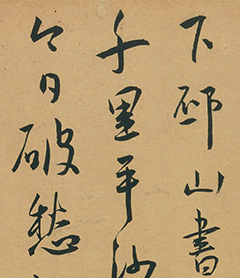 下邳山書
千里平沙
今日破愁